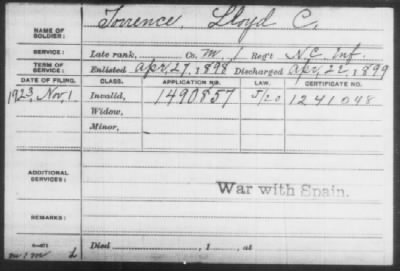 NAME OF SOLDIER: Torrence, Lloyd C.
SERVICE: Late rank, Co. M, 1 Reg't N.C. Inf.
TERM OF SERVICE: Enlisted Apr. 27, 1898 Discharged Apr. 22, 1899
DATE OF FILING. CLASS. APPLICATION NO. LAW. CERTIFICATE NO.
1923, Nov, 1 Invalid, 1490857 J/20 1241048
Widow,
Minor,
ADDITIONAL SERVICES:
War with Spain.
REMARKS:
Died , 1 , at